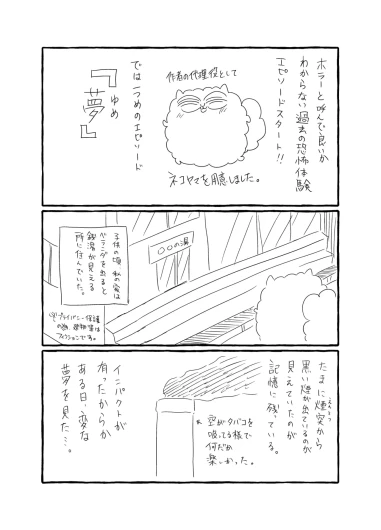 ホラーと呼んで良いか
わからない過去の恐怖体験
エピソードスタート!!
作者の代理役として
ネコヤマを用意しました。
では一つめのエピソード
『夢』
ゆめ
〇〇の湯
子供の頃、私の家は
ベランダを出ると
銭湯が見える
所に住んでいた。
プライバシー保護
の為、建物等は
フィクションです。
たまに煙突から
えんとつ
黒い煙が出ているのが
見えていたのが
記憶に残っている。
空がタバコを
吸ってる様で
何だか
楽しかった。
インパクトが
有ったからか
ある日、変な
夢を見た…。